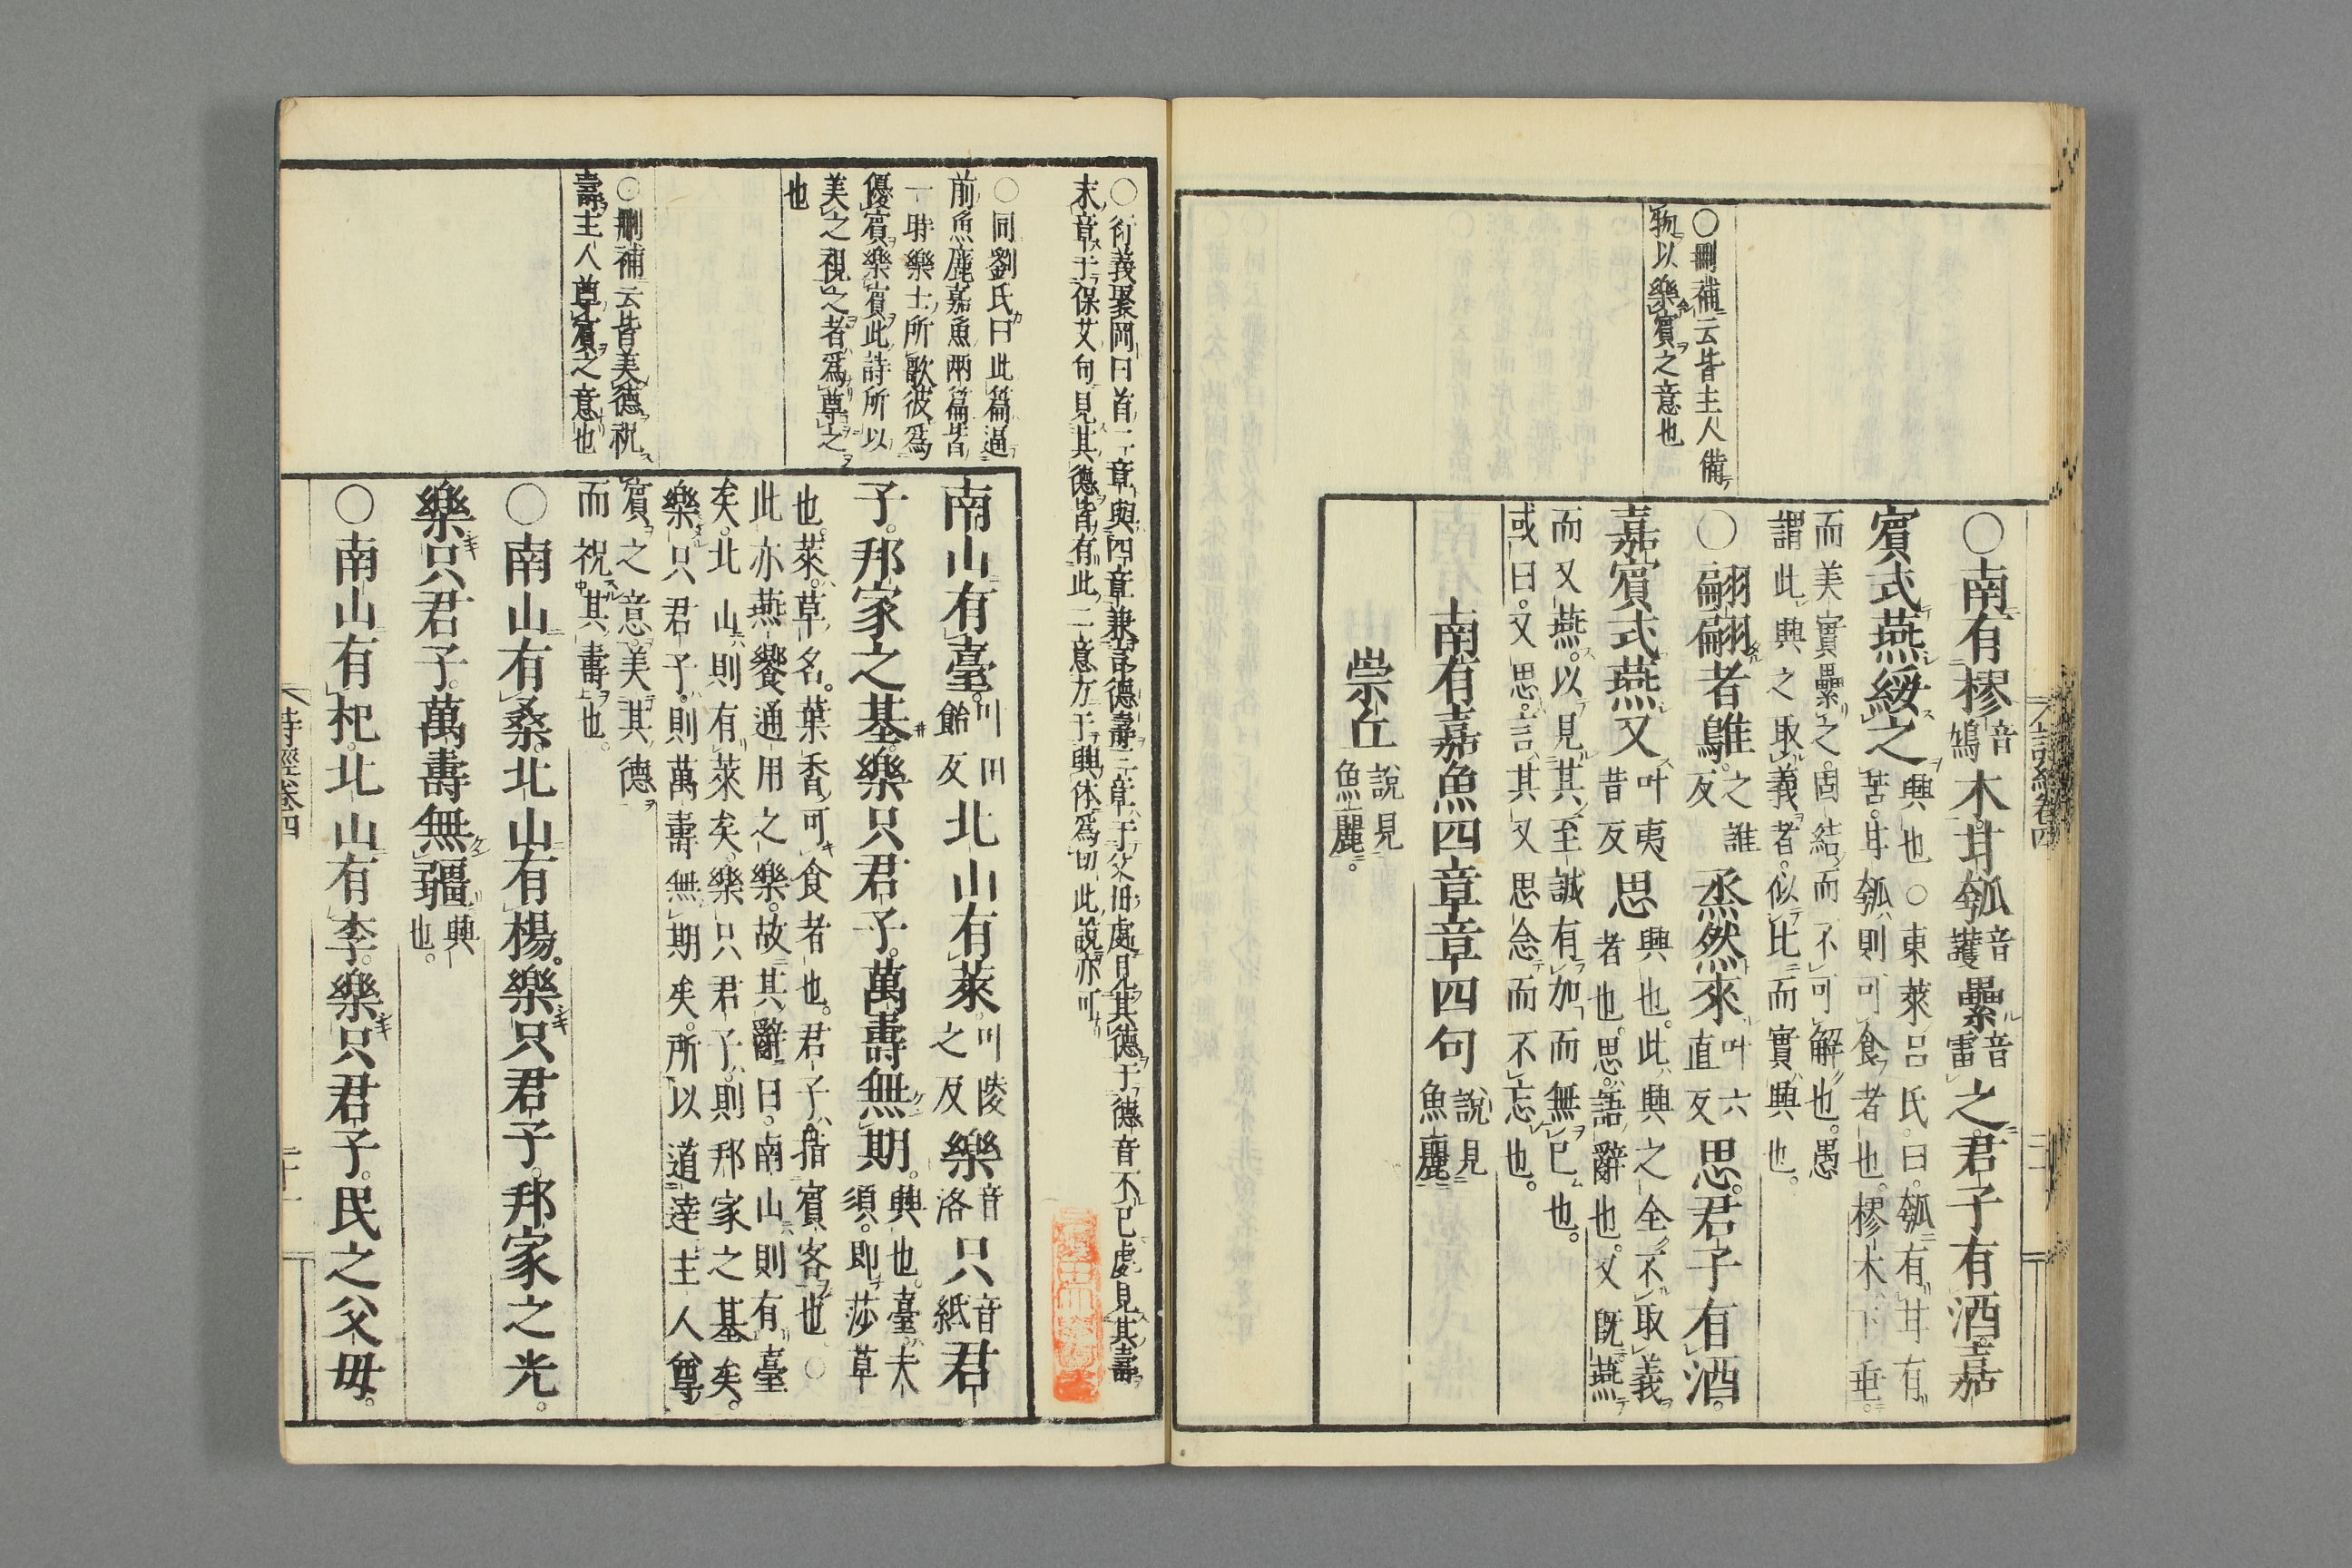 ○刪補云皆主人備
物以樂賓之意也
○南有樛音鳩木甘瓠音護纍音雷之君子有酒嘉
賓式燕綏之興也○東萊呂氏曰瓠有甘有
苦甘瓠則可食者也樛木下垂
而美實纍之固結而不可解也愚
謂此興之取義者似比而實興也
○翩翩者鵻之誰反烝然來叶六直反思君子有酒
嘉賓式燕又叶夷昔反思興也此興之全不取義
者也思語辭也又既燕
而又燕以見其至誠有加而無已也
或曰又思言其又思念而不忘也
南有嘉魚四章章四句說見魚麗
崇丘說見魚麗
詩經卷四
○衍義翼岡曰首二章與四章兼言德壽三章于父母處見其德于德音不已處見其壽
末章于保艾句見其德皆有此二意方于興体爲切此說亦可
○同劉氏曰此篇逼
前魚麗嘉魚兩篇皆
一時樂士所歌彼爲
優賓樂賓此詩所以
美之視之者爲尊之
也
○刪補云皆美德祝
壽主人尊賓之意也
南山有臺叶田飴反北山有萊叶陵之反樂音洛只音紙君
子邦家之基樂只君子萬壽無期興也臺夫
須即莎草
也萊草名葉香可食者也君子指賓客也○
此亦燕饗通用之樂故其辭曰南山則有臺
矣北山則有萊矣樂只君子則邦家之基矣
樂只君子則萬壽無期矣所以道達主人尊
賓之意美其德
而祝其壽也
○南山有桑北山有楊樂只君子邦家之光
樂只君子萬壽無疆興也
○南山有杞北山有李樂只君子民之父毋
詩經卷四